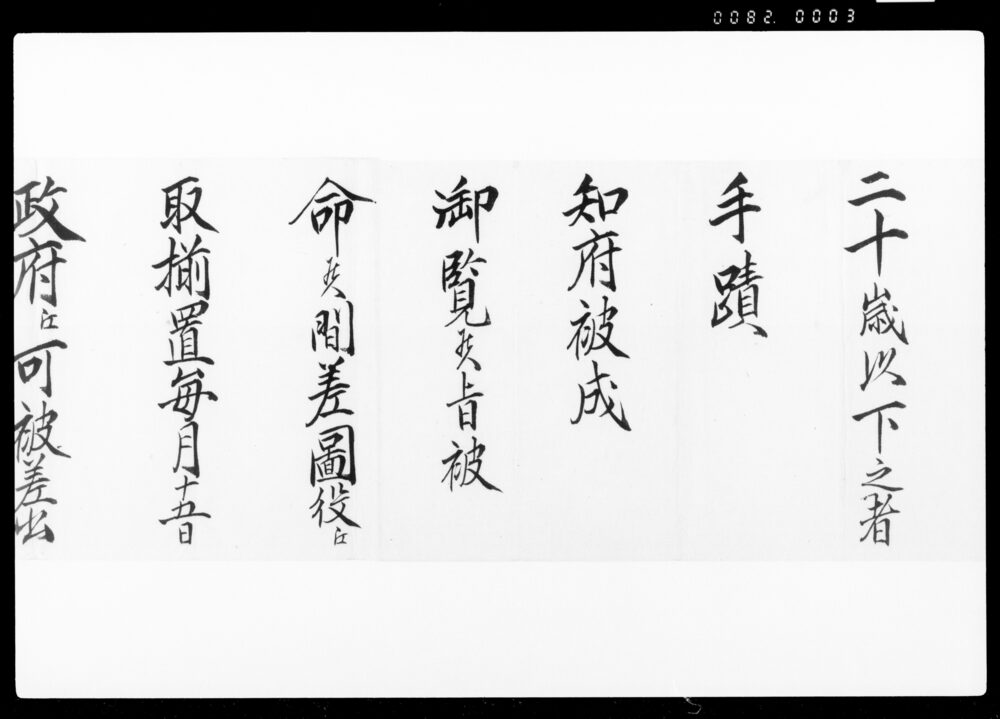 0082. 0003
二十歳以下之者
手蹟
知府被成
御覧候旨被
命候間差図役江
取揃置毎月十五日
政府江可被差出